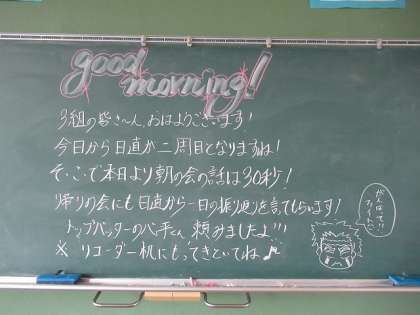 good
morning!
3組の皆さ〜ん、おはようございます!
今日から日直が二周目となりますね!
そ・こ・で本日より朝の会の話は30秒!
帰りの会にも日直から一日の振り返りを言てもらいます!
トップバッターの心平くん頼みましたよ!!!
※リコーダー机にもってきていてね♪
がんばって!!
ファイト!